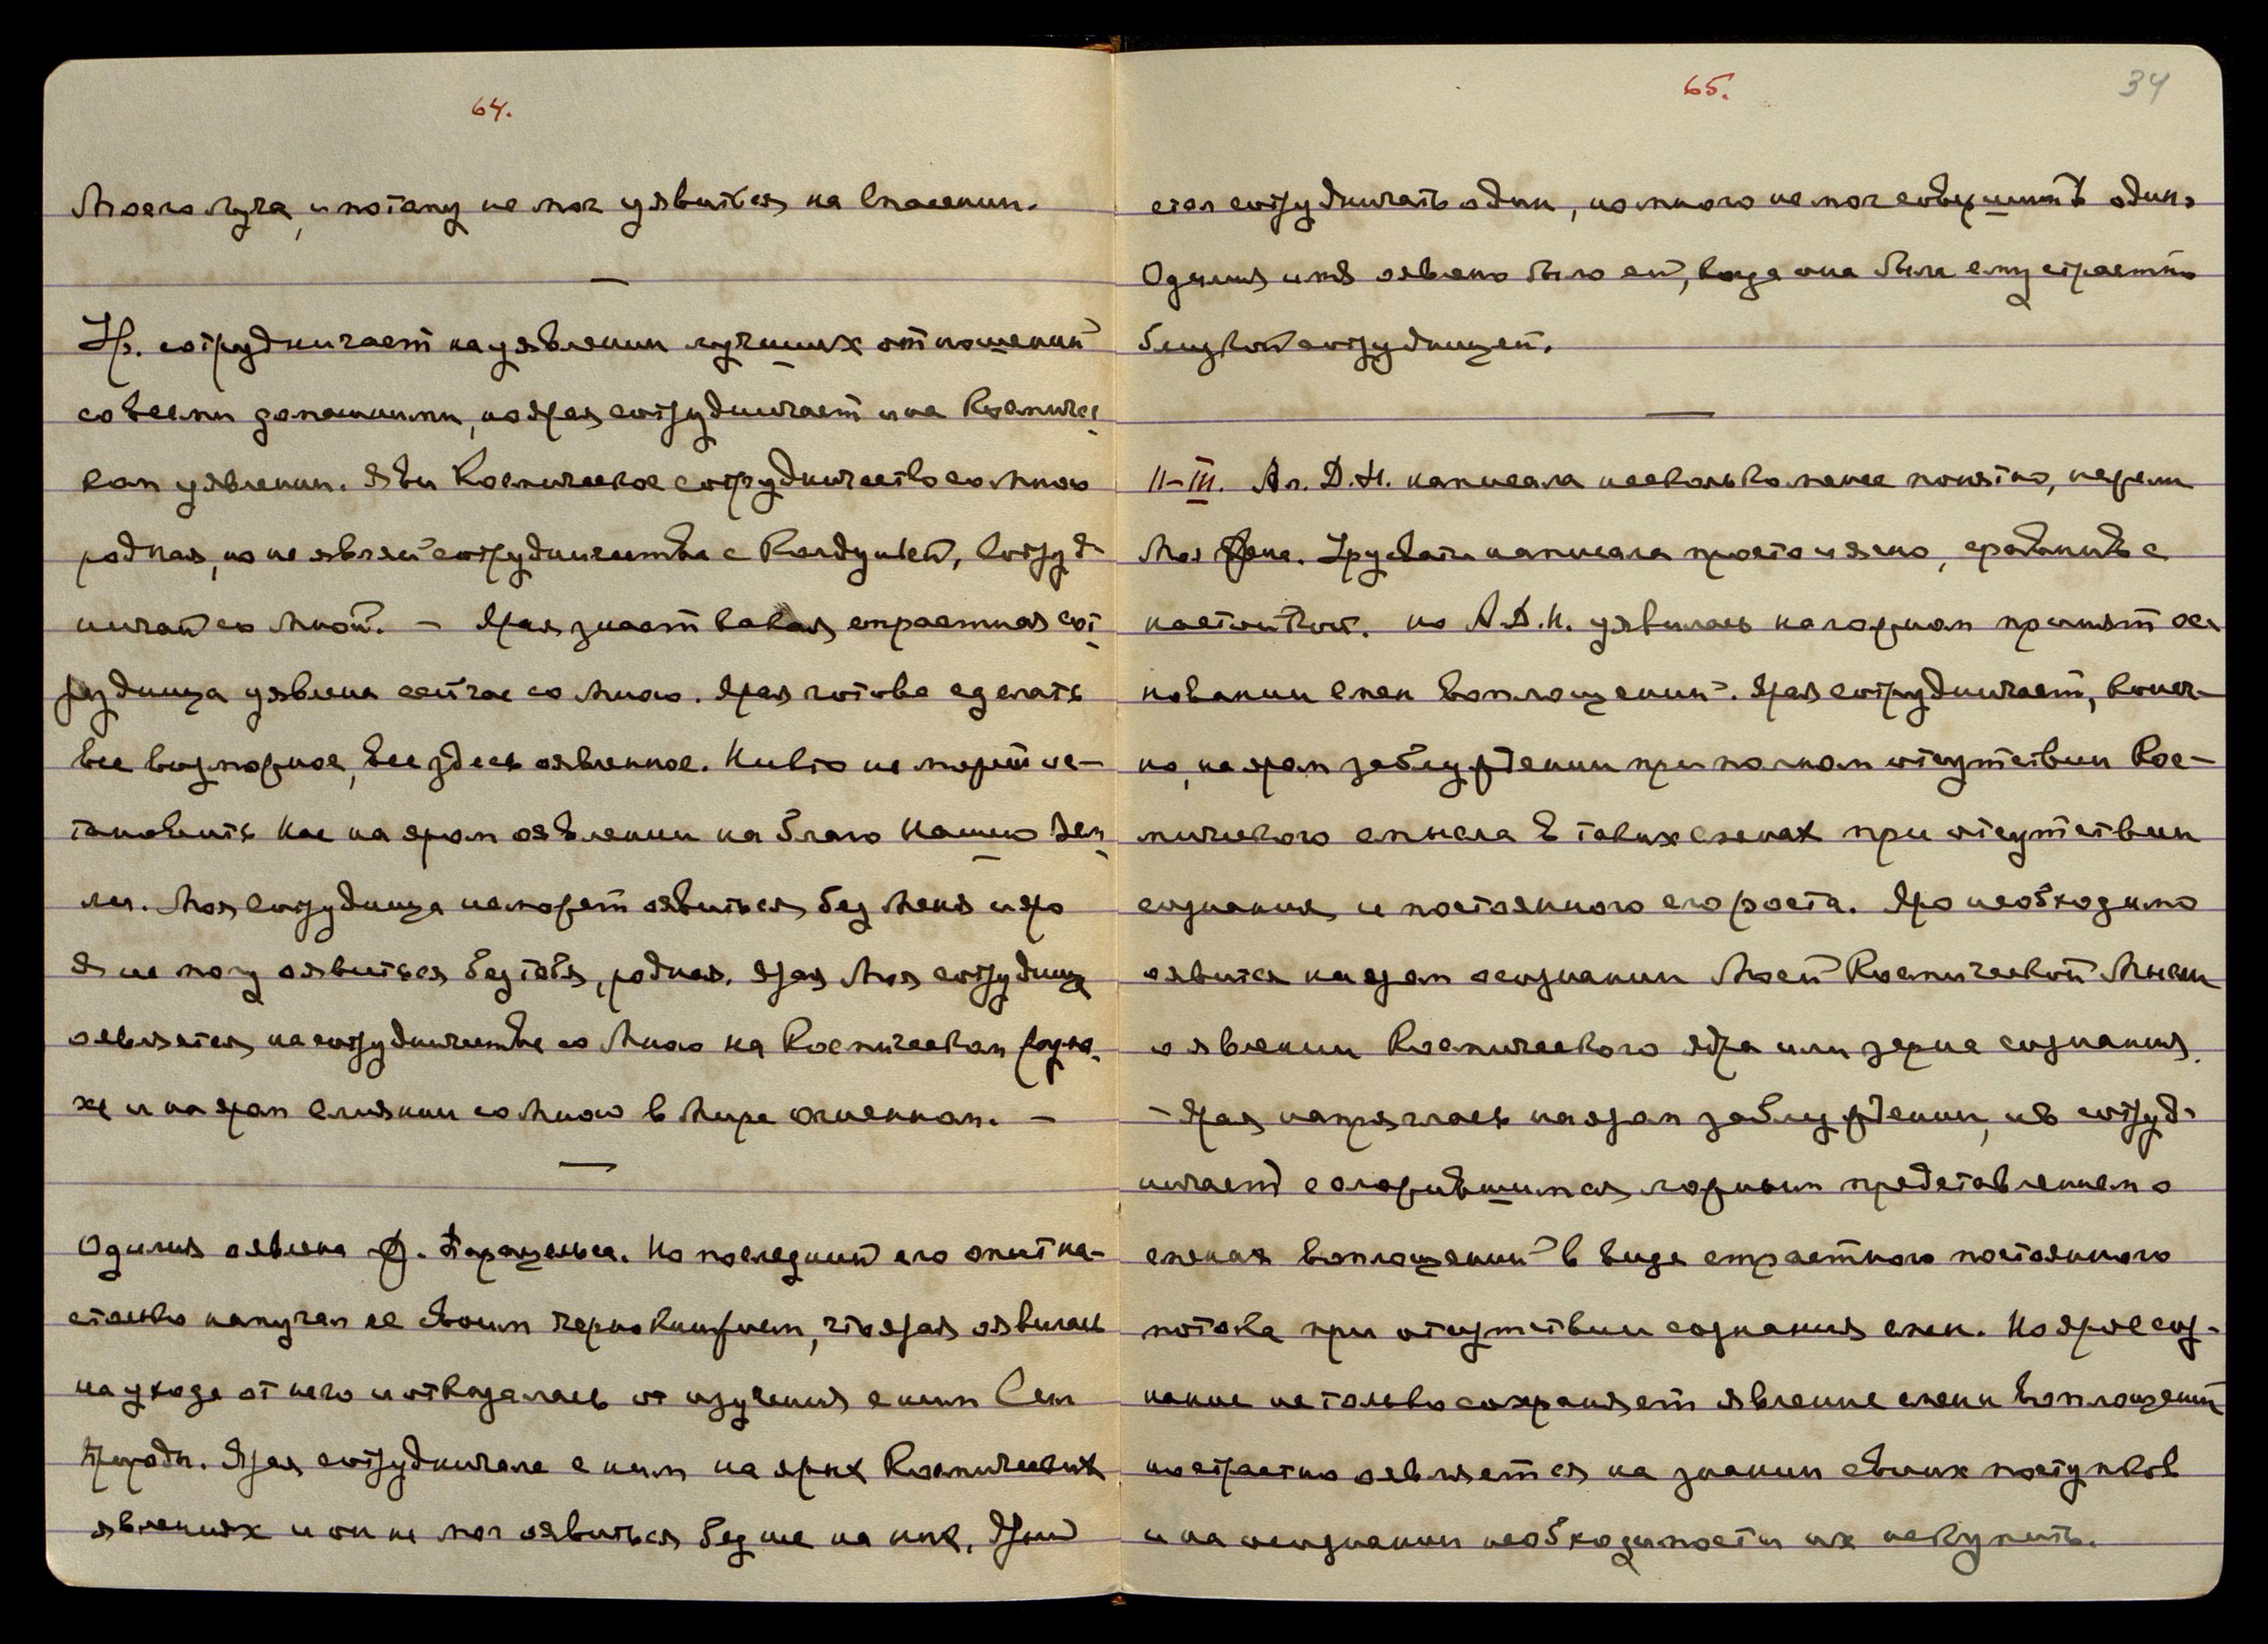 64.
Моего луча, и потому не мог уявиться на спасении.
—
Ур. сотрудничает на уявлении лучших отношений
со всеми домашними, но ярая сотрудничает и на Космичес
ком уявлении. Яви Космическое сотрудничество со Мною
родная, но не являй сотрудничества с Колдуньей, Сотруд-
ничай со Мной. – Ярая знает какая страстная сот
рудница уявлена сейчас со Мною. Ярая готова сделать
все возможное, все здесь явленное. Никто не может ос-
тановить Нас на яром оявлении на благо Нашей Зем
ли. Моя сотрудница не может оявиться без Меня и яро
Я не могу оявиться без тебя, родная. Ярая Моя сотрудница
оявляется на сотрудничестве со Мною на Космическом
же и на яром слиянии со Мною в Мире огненном. –
—
Одилия оявлена Ф. Парацельса. Но последний его опыт на-
столько напугал ее своим чернокнижием, что ярая оявилась
на уходе от него и отказалась от изучения с ним Сил
Природы. Ярая сотрудничала с ним на ярых Космических
явлениях и он не мог оявиться без нее на них. Ярый
65.
34
стал сотрудничать один, но много не мог совершить один.
Одилия имя оявлено было ей, когда она была ему страстно
близкой сотрудницей.
—
11-III. Ал. Д.Н. написала несколько менее понятно, нежели
Моя Жена. Урусвати написала просто и ясно, сравнить с
настойкой. но А.Д.Н. уявилась на ложном принятом ос-
новании смен воплощений. Ярая сотрудничает, конеч-
но, на яром заблуждении при полном отсутствии Кос-
мического смысла в таких сменах при отсутствии
сознания и постоянного его роста. Яро необходимо
оявится на яром осознании Моей Космической Мысли
о явлении Космического ядра или зерна сознания.
– Ярая напряглась на яром заблуждении, ибо сотруд-
ничает с сложившимся ложным представлением о
сменах воплощений в виде страстного постоянного
потока при отсутствии сознания смен. Но ярое соз-
нание не только сохраняет явление смены воплощений
но страстно оявляется на знании своих поступков
и на осознании необходимости их искупить.